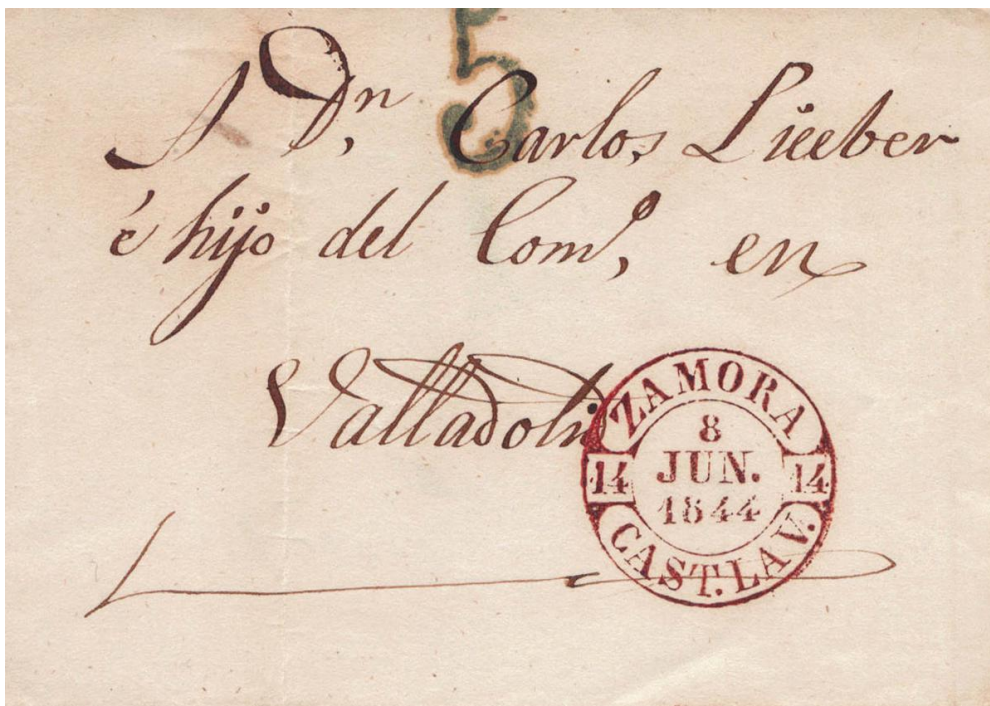 5
A Dn. Carlos Lieeber
é hijo del Como, en
Valladolid
ZAMORA
8
JUN.
1844
14 14
CAST. LA V.